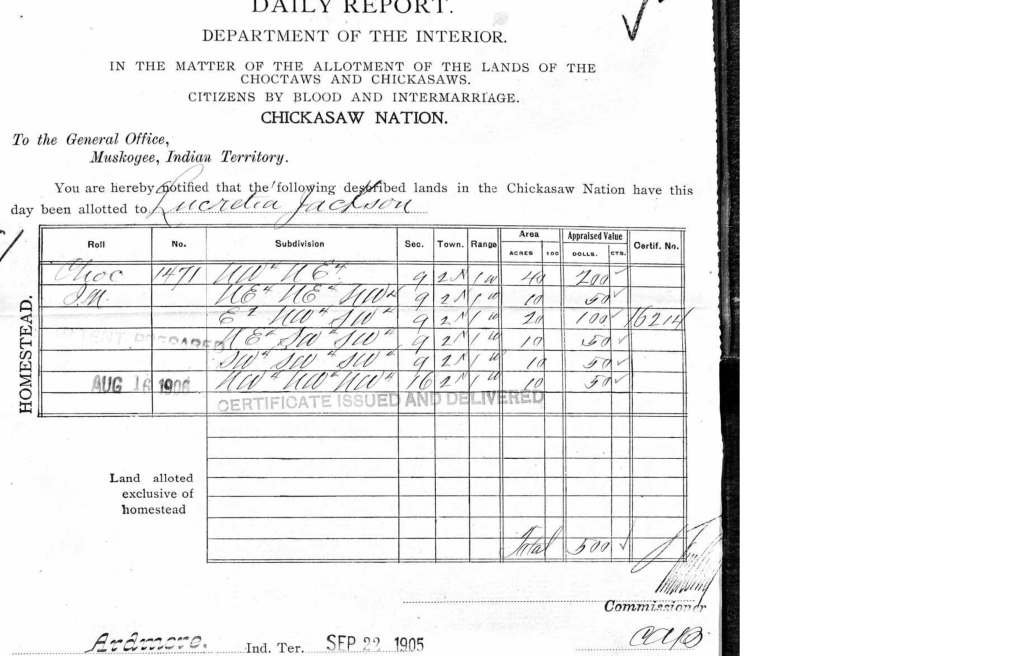 DAILY REPORT.
DEPARTMENT OF THE INTERIOR.
IN THE MATTER OF THE ALLOTMENT OF THE LANDS OF THE
CHOCTAWS AND CHICKASAWS.
CITIZENS BY BLOOD AND INTERMARRIAGE.
CHICKASAW NATION.
To the General Office,
Muskogee, Indian Territory.
You are hereby notified that the following described lands in the Chickasaw Nation have this
day been allotted to Lucretia Jackson
Roll No. Subdivision Sec. Town. Range Area ACRES 100 Appraised Value DOLLS. CTS. Certif. No.
HOMESTEAD.
Choc 1471 NW4 NE4 9 2N 1W 40 200
I.M. NE4 NE4 SW4 9 2N 1W 10 50
E2 NW4 SW4 9 2N 1W 20 100 16214
NE4 SW4 SW4 9 2N 1W 10 50
PATENT PREPARED
SW4 SW4 SW4 9 2N 1W 10 50
AUG 16 1906 NW4 NW4 NW4 16 2N 1W 10 50
CERTIFICATE ISSUED AND DELIVERED
Land alloted
exclusive of
homestead
Total 500
Commissioner
Ardmore, Ind. Ter. SEP 22 1905